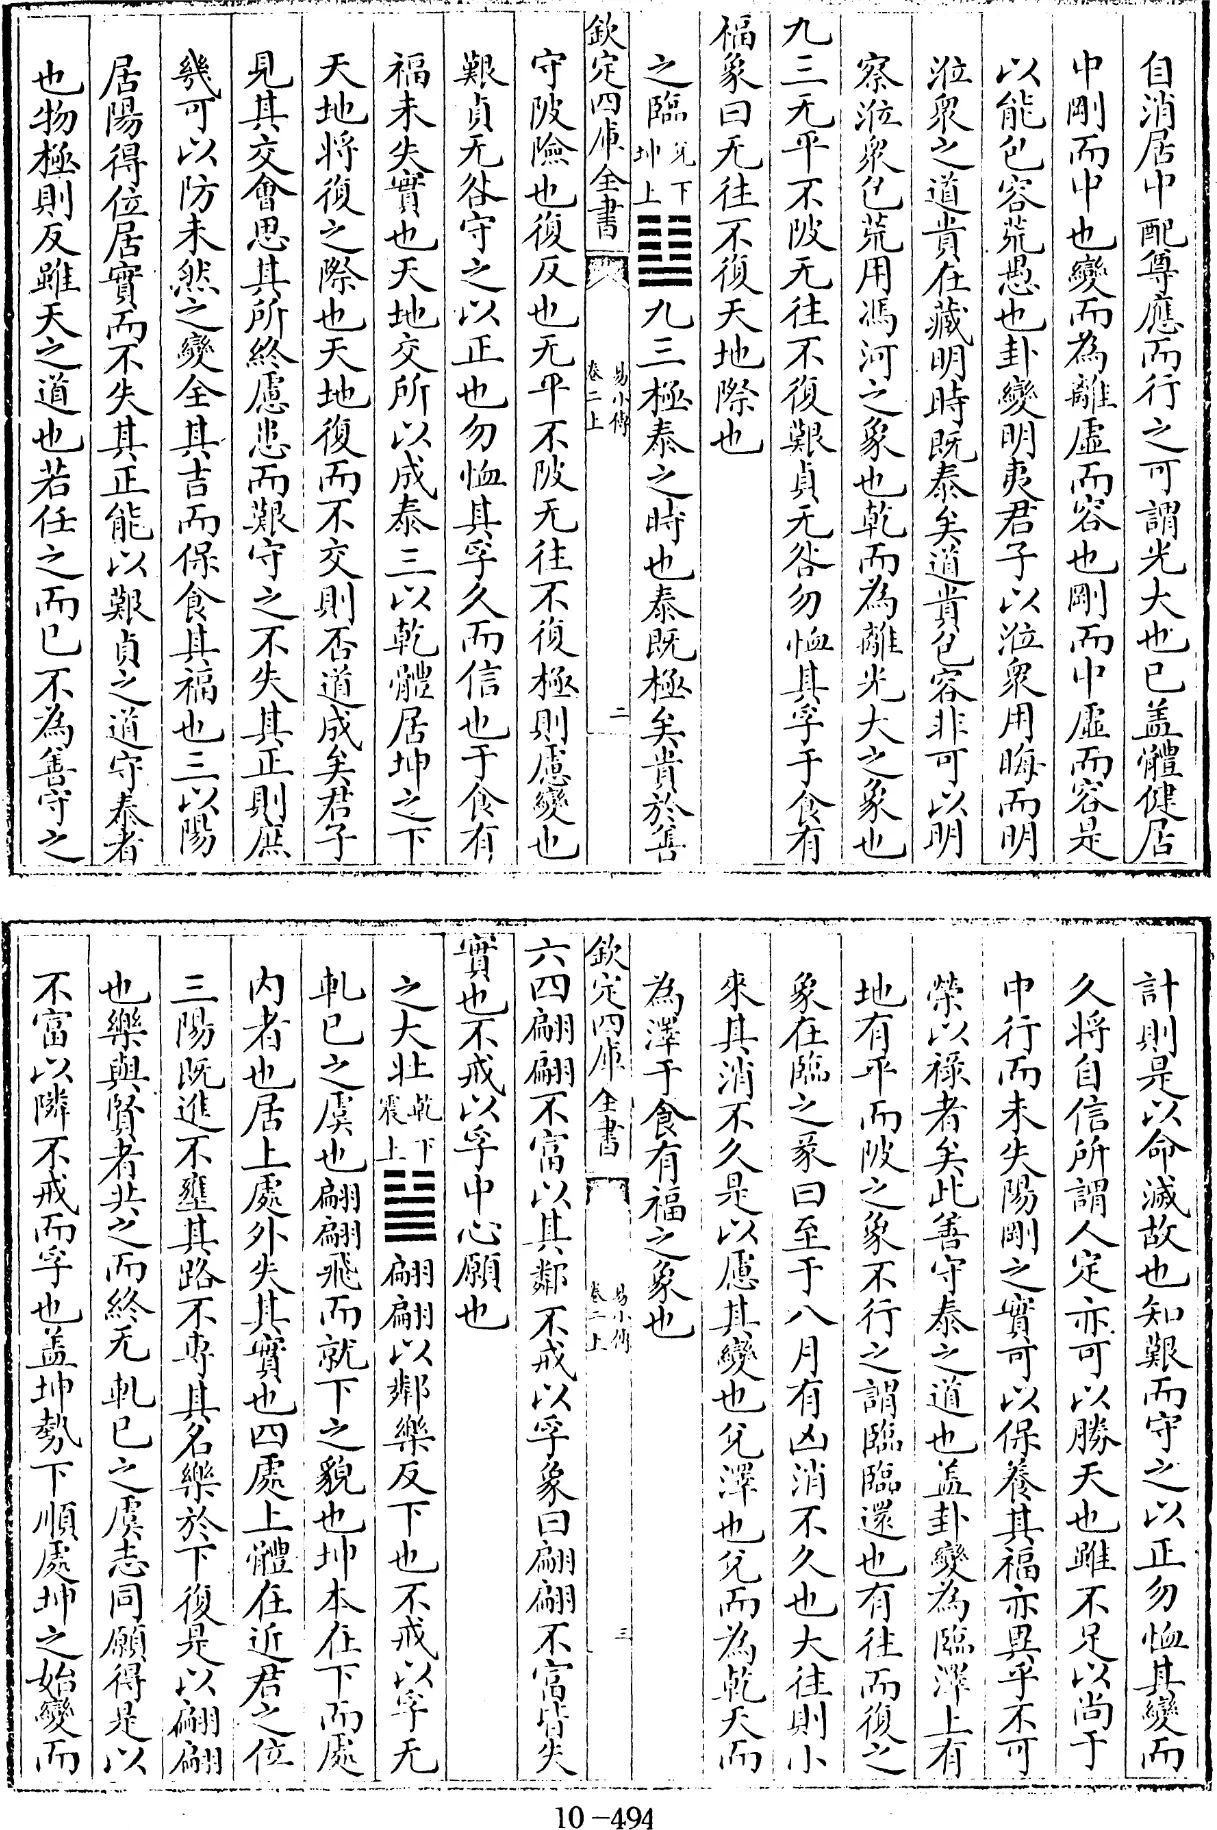 自消居中配尊應而行之可謂光大也已盖體健居
中剛而中也變而為離虛而容也剛而中虛而容是
以能包容荒愚也卦變明夷君子以涖衆用晦而明
涖衆之道貴在藏明時既泰矣道貴包容非可以明
察涖衆包荒用馮河之象也乾而為離光大之象也
九三无平不陂无往不復艱貞无咎勿恤其孚于食有
福象曰无往不復天地際也
之臨兌下坤上䷒九三極泰之時也泰既極矣貴於善
欽定四庫全書 易小傳卷二上 二
守陂險也復反也无平不陂无往不復極則慮變也
艱貞无咎守之以正也勿恤其孚久而信也于食有
福未失實也天地交所以成泰三以乾體居坤之下
天地將復之際也天地復而不交則否道成矣君子
見其交會思其所終慮患而艱守之不失其正則庶
幾可以防未然之變全其吉而保食其福也三以陽
居陽得位居實而不失其正能以艱貞之道守泰者
也物極則反雖天之道也若任之而已不為善守之
計則是以命滅故也知艱而守之以正勿恤其變而
久將自信所謂人定亦可以勝天也雖不足以尚于
中行而未失陽剛之實可以保養其福亦異乎不可
榮以祿者矣此善守泰之道也盖卦變為臨澤上有
地有平而陂之象不行之謂臨臨還也有往而復之
象在臨之彖曰至于八月有凶消不久也大往則小
來其消不久是以慮其變也兌澤也兌而為乾天而
為澤于食有福之象也
欽定四庫全書 易小傳卷二上 三
六四翩翩不富以其鄰不戒以孚象曰翩翩不富皆失
實也不戒以孚中心願也
之大壯乾下震上䷡翩翩以鄰樂反下也不戒以孚无
軋已之虞也翩翩飛而就下之貌也坤本在下而處
内者也居上處外失其實也四處上體在近君之位
三陽既進不壅其路不專其名樂於下復是以翩翩
也樂與賢者共之而終无軋已之虞志同願得是以
不富以隣不戒而孚也盖坤勢下順處坤之始變而
10-494